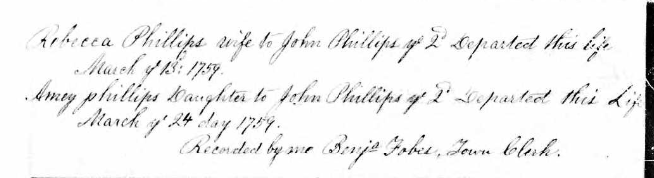 Rebecca Phillips wife to John Phillips ye 2d Departed this life
March ye 13: 1759.
Amey phillips Daughter to John Phillips ye 2d Departed this Life
March ye 24 day 1759.
Recorded by me Benja Fobes, Town Clerk.